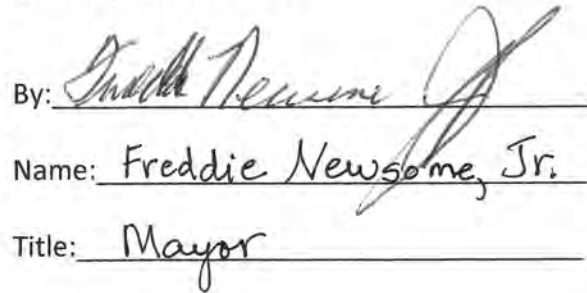 By: Freddie Newsome Jr
Name: Freddie Newsome, Jr.
Title: Mayor